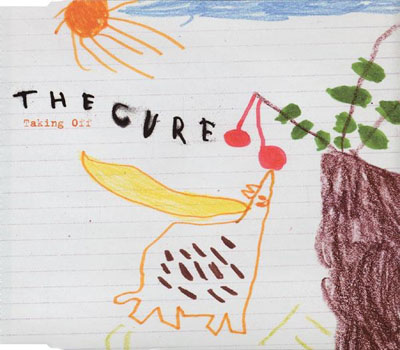 THE CURE
Taking Off